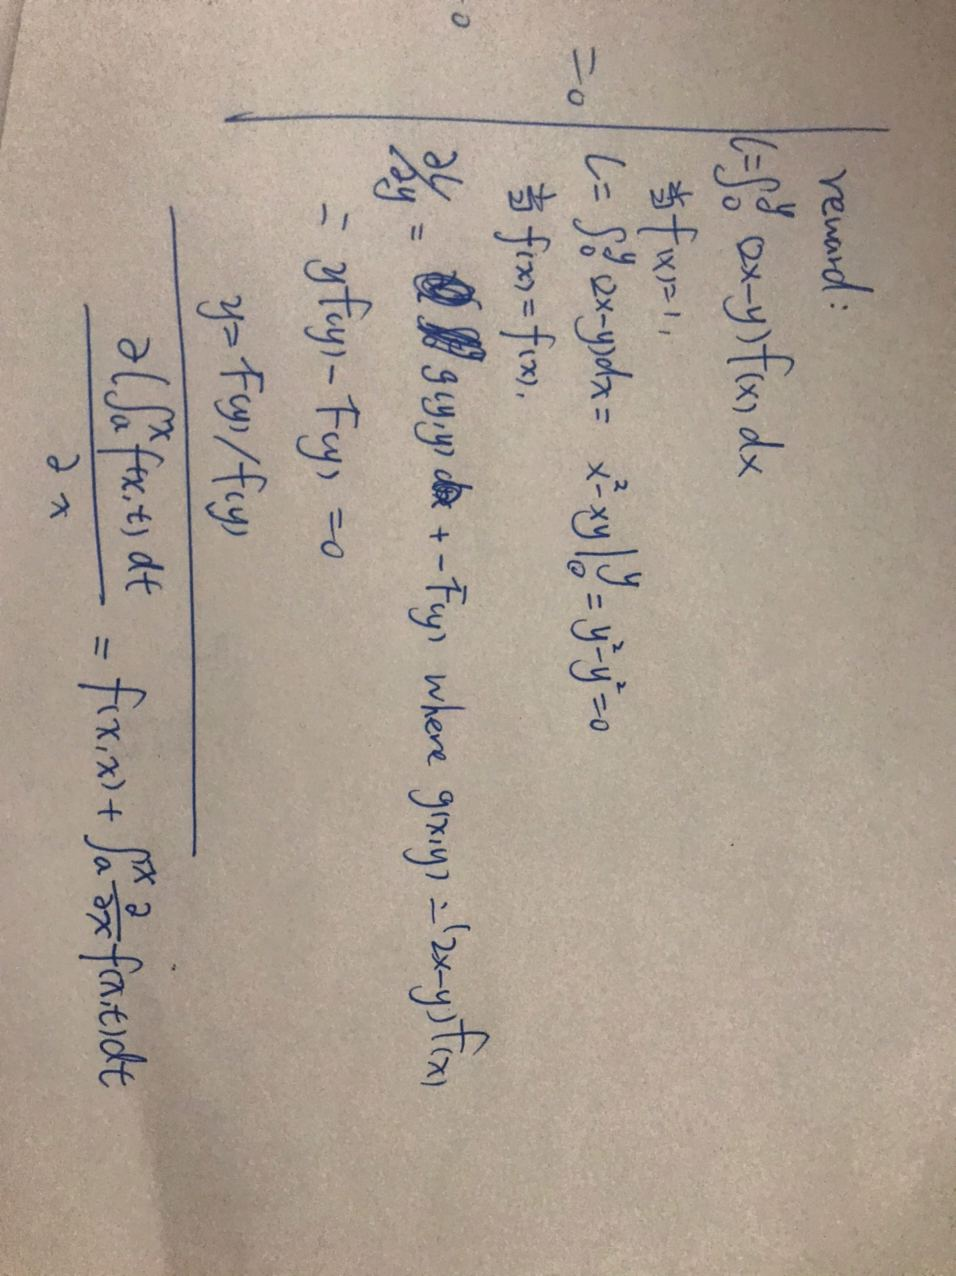 =0
reward:
L=∫₀^y (2x-y)f(x)dx
当f(x)=1,
L=∫₀^y (2x-y)dx= x²-xy|₀^y=y²-y²=0
当f(x)=f(x),
∂L/∂y = g(y,y) + -F(y) where g(x,y)=(2x-y)f(x)
= yf(y)-F(y)=0
y=F(y)/f(y)
∂(∫ₐ^x f(x,t)dt)/∂x = f(x,x)+∫ₐ^x ∂/∂x f(x,t)dt